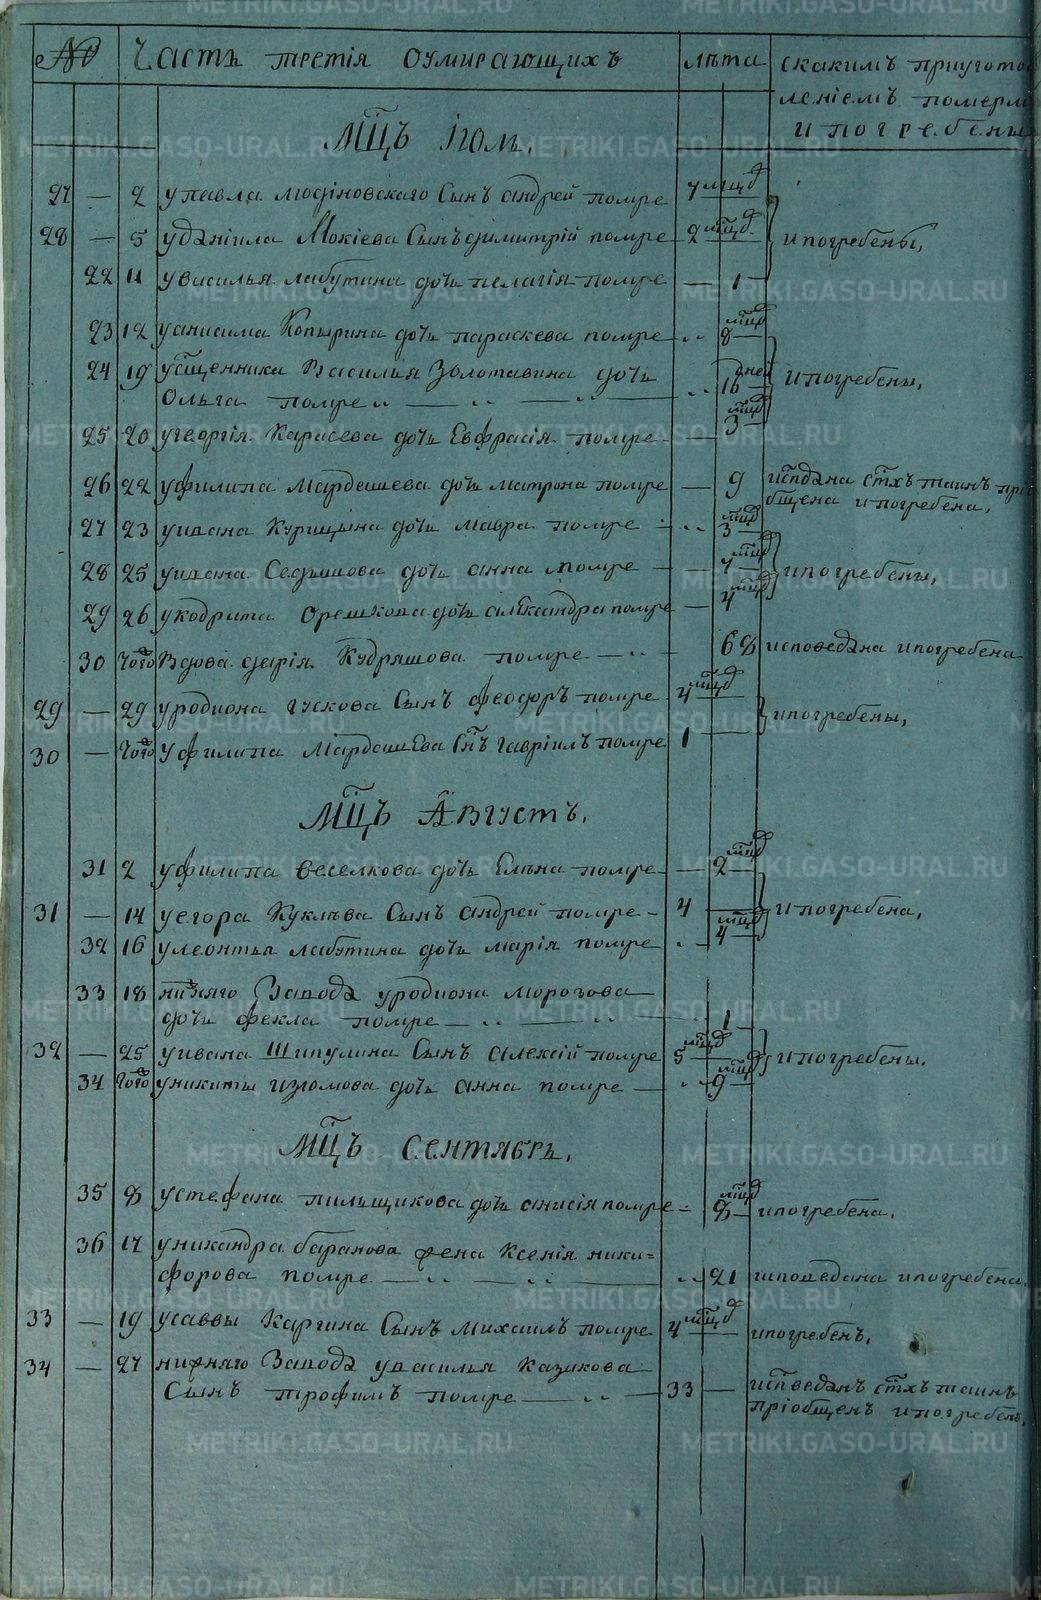 № Часть третія оумирающихъ лѣта скакимъ приугото
леніемъ померли
и погребены
Мцъ Іюль.
27 — 2 у павла людіновскаго Сынъ андрей помре 7 мцд
28 — 5 у даніила Мокіева Сынъ димитрій помре 2 мцд. и погребены,
22 11 у василья лабутина дочь пелагія помре — 1
23 12 у анисима Копырина дочь параскева помре 8 мцд
24 19 у сщенника Василья Золотавина дочь 16 дней и погребены,
Ольга помре
25 20 у георгія Карасева дочь Евфрасія помре 3 мцд
26 22 у филипа Мардашева дочь матрона помре — 9 испдана стхъ таинъ прі
бщена и погребена.
27 23 у ивана Курицына дочь мавра помре 3 мцд
28 25 у ивана Седышова дочь анна помре — 7 мцд и погребены,
29 26 у кодрата Орешкова дочь александра помре — 4 мцд
30 того Вдова дарія Кудряшова помре 68 исповедана и погребена
29 — 29 у родиона гускова Сынъ феодоръ помре 4 мцд и погребены,
30 — того у филипа Мардашева Снъ гавріилъ помре 1
Мцъ Августъ.
31 2 у филипа веселкова дочь Елена помре — 2 мцд
31 — 14 у егора Куклева Сынъ андрей помре 4 и погребена,
32 16 у леонтья лабутина дочь марія помре 4 мцд
33 18 нижняго Завода у родиона морозова
дочь фекла помре 1
32 — 25 у ивана Шипулина Сынъ алексій помре 5 мцд и погребены.
34 того у никиты изломова дочь анна помре — 9 мцд
Мцъ Сентябрь.
35 8 у стефана пильщикова дочь анисія помре 8 мцд и погребена.
36 17 у никандра баранова жена Ксенія ники=
форова помре 21 исповедана и погребена.
33 — 19 у саввы Каргина Сынъ михаилъ помре 4 мцд и погребенъ.
34 — 27 нижняго Завода у василья Казакова
Сынъ трофимъ помре 33 — испведанъ стхъ таинъ
пріобщенъ и погребенъ.
METRIKI.GASO-URAL.RU